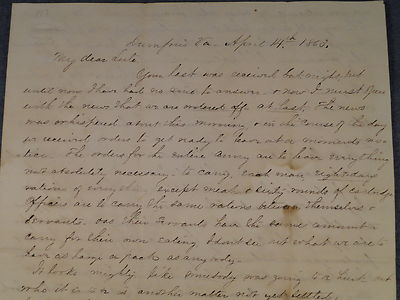 Dumfries Va - April 14th 1863.
My dear
Your last was received last night, but
until now I have had no time to answer - & now I must
with the news that we are ordered off at last. The news
was whispered about this morning, & in the course of the day
we received orders to get ready to leave at a moments no-
tice. The orders for the entire army are to leave everything
not absolutely necessary - to carry, each man, eight days
rations of everything except meat & sixty rounds of cartridges
Officers are to carry the same rations between themselves &
servants. As their servants have the same amount to
carry for their own eating I dont see but what we are to
have as large a pack as anybody.
It looks mighty like somebody was going to be hurt but
who it is or is another matter not yet settled.